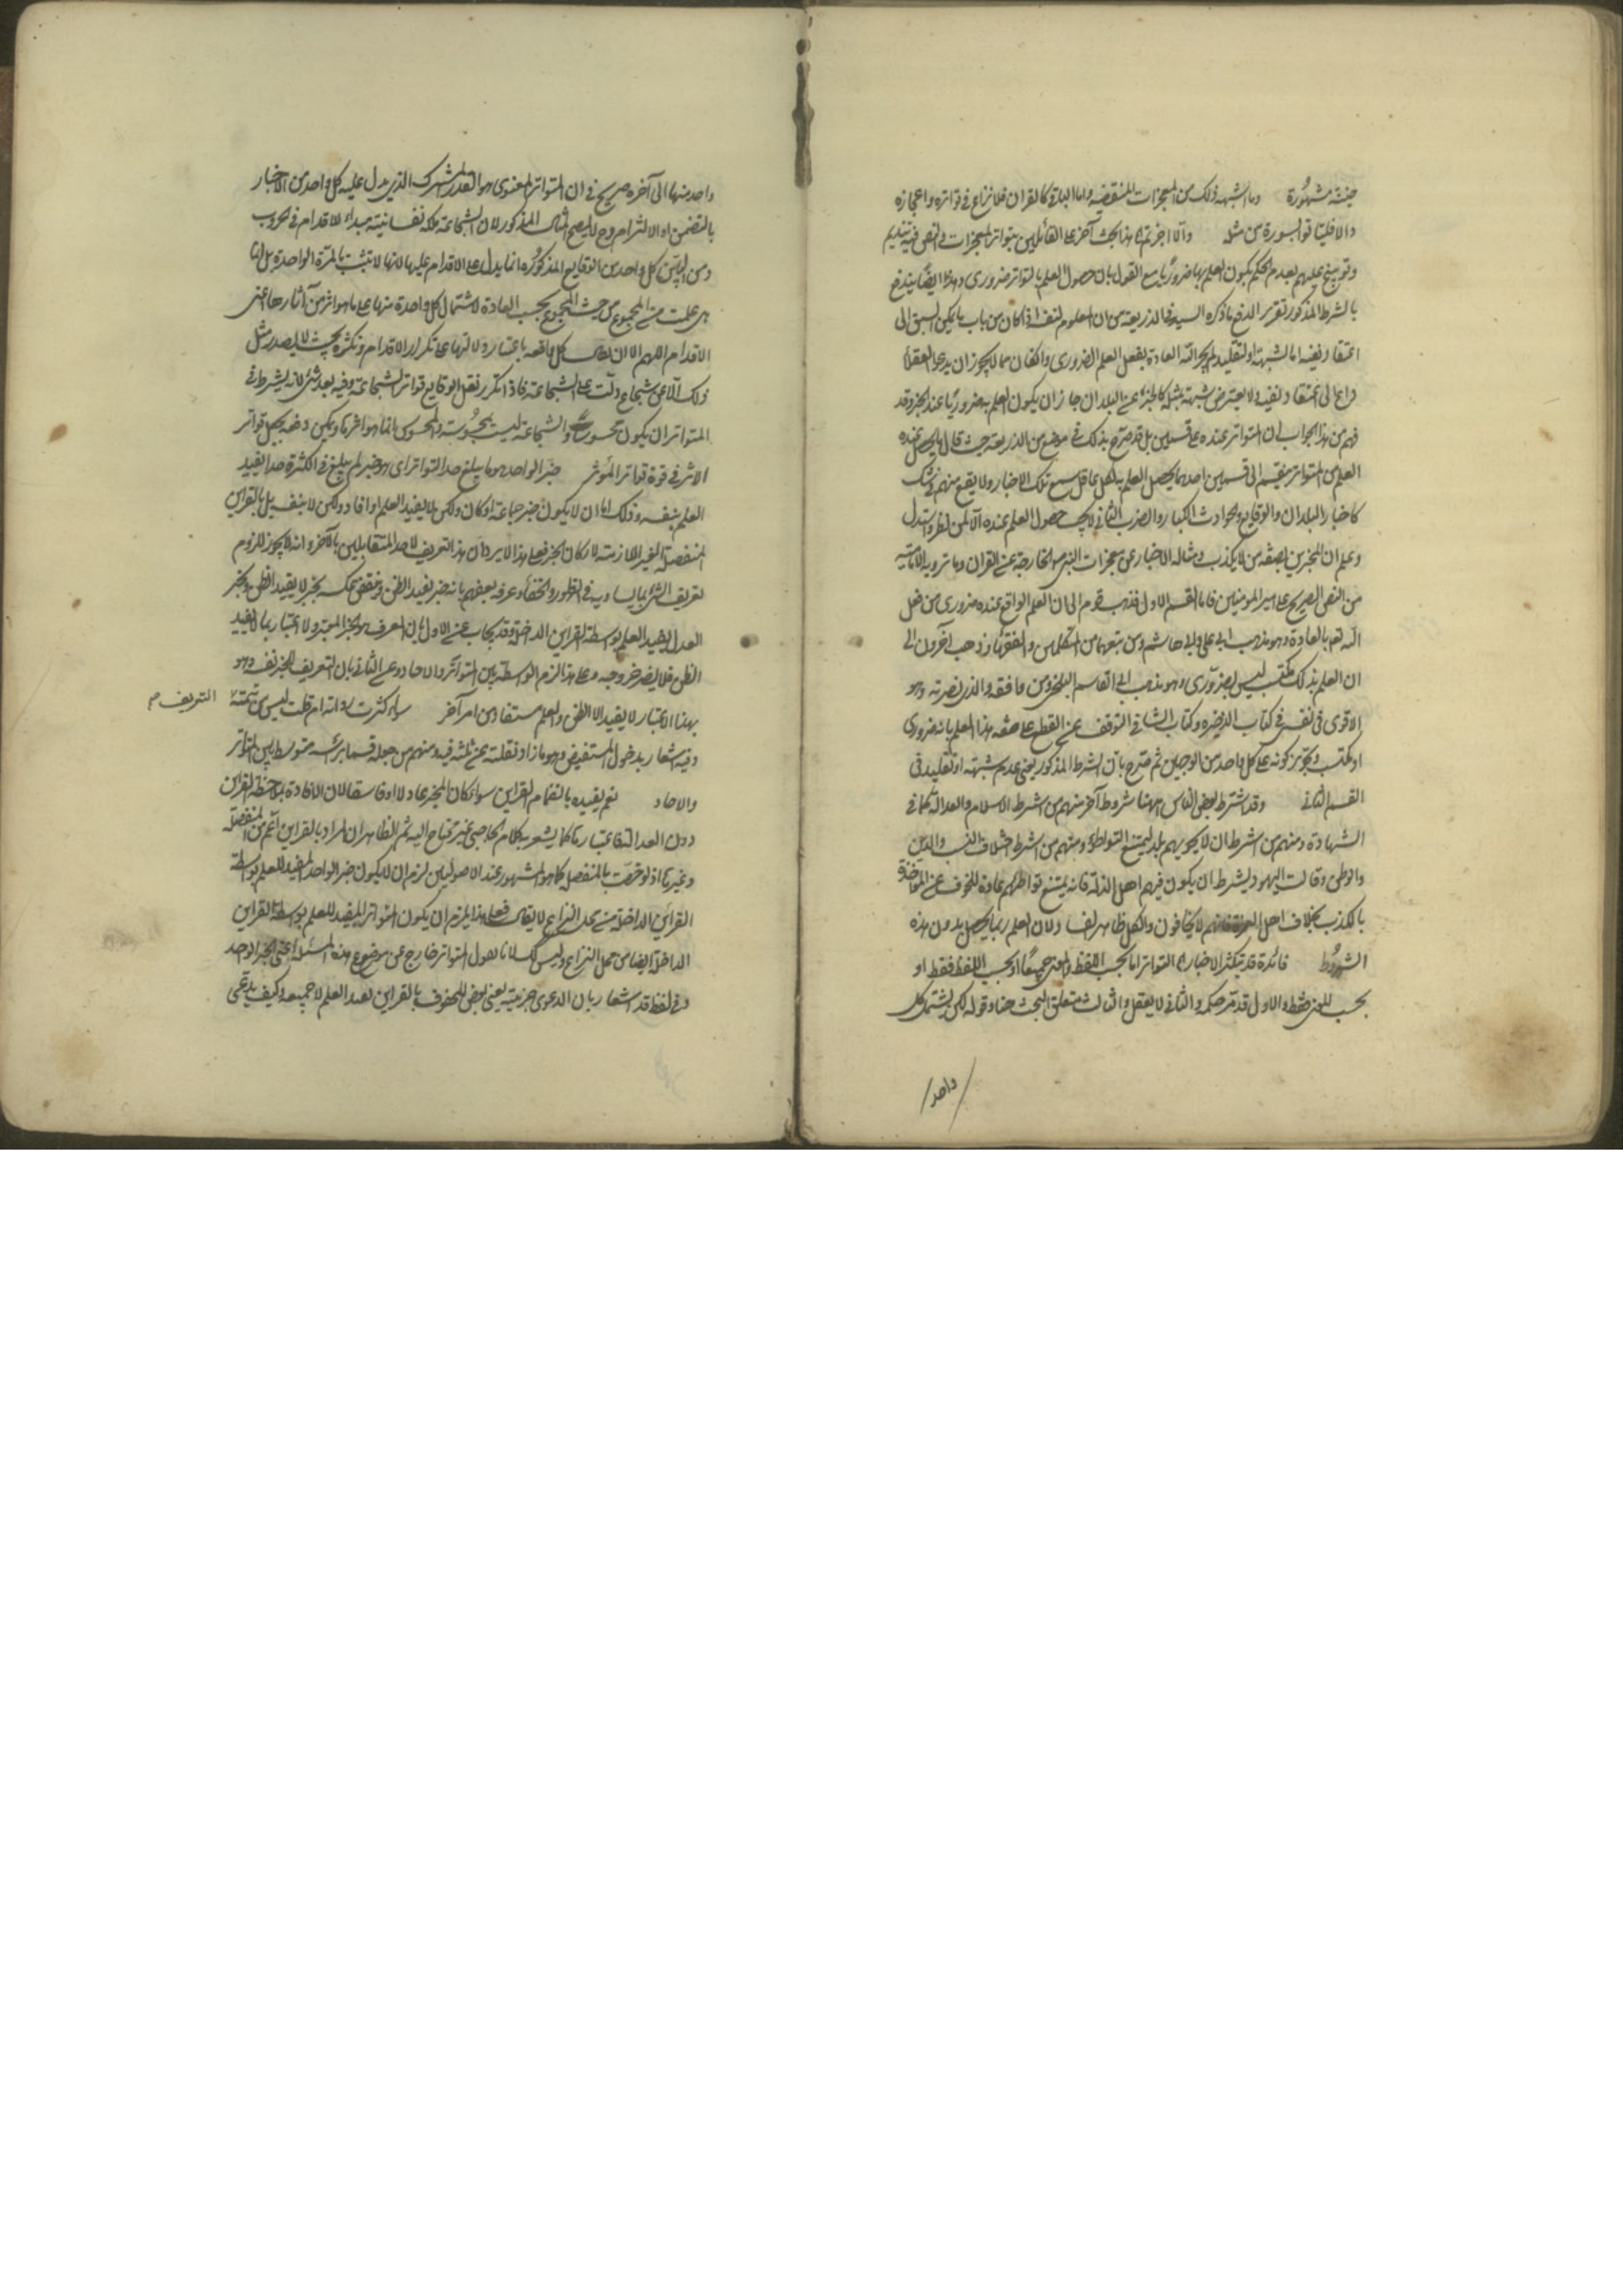 جنّته مشهورة وما اشبه ذلك من المعجزات المنقضية واما الباقي كالقران فلا نزاع في تواتره واعجازه
والا فليأتوا بسورة من مثله والا اخرتم هذا بحث آخر على القائلين بتواتر المعجزات والنص فيه تنديم
وتوبيخ عليهم بعدم الحكم بكون العلم بها ضروريا مع القول بان حصول العلم بالتواتر ضروري وهذا ايضا يندفع
بالشرط المذكور تقرير الدفع ما ذكره السيد في الذريعة من ان المعلوم لنفسه اذا كان من باب ما يمكن السبق الى
اعتقاد نفيه اما لشبهة او لتقليد لم يجر الله العادة بفعل العلم الضروري وان كان مما لا يجوز ان يدعو العقلاء
داع الى اعتقاد نفيه ولا يعترض شبهة بمثله كالخبر عن البلدان جاز ان يكون العلم به ضروريا عند الخبر وقد
فهم من هذا الجواب ان المتواتر عنده على قسمين بل قد صرح بذلك في موضع من الذريعة حيث قال ما يحصل عنده
العلم من المتواتر ينقسم الى قسمين احدهما يحصل العلم به لكل عاقل سمع تلك الاخبار ولا يقع منهم فيه شك
كاخبار البلدان والوقايع والحوادث الكبار والضرب الثاني لا يجب حصول العلم عنده الا لمن نظر واستدل
وعلم ان المخبرين بصفة من لا يكذب ومثاله الاخبار عن معجزات النبي ص الخارجة عن القران وما ترويه الامامية
من النص الصريح على امير المومنين فاما القسم الاول فذهب قوم الى ان العلم الواقع عنده ضروري من فعل
الله تعم بالعادة وهو مذهب ابي علي وابي هاشم ومن تبعهما من المتكلمين والفقهاء وذهب آخرون الى
ان العلم بذلك مكتسب ليس بضروري وهو مذهب ابي القاسم البلخي ومن وافقه والذي نصرته وهو
الاقوى في نفسي في كتاب الذخيرة وكتاب الشافي التوقف عن القطع على صفة هذا العلم بانه ضروري
او مكتسب وتجويز كونه على كل واحد من الوجهين ثم صرح بان الشرط المذكور يعني عدم شبهة او تقليد في
القسم الثاني وقد اشترط بعض الناس ههنا شروطا آخر منهم من اشترط الاسلام والعدالة كما في
الشهادة ومنهم من اشترط ان لا يحويهم بلد ليمتنع التواطؤ ومنهم من اشترط اختلاف النسب والدين
والوطن وقالت اليهود يشترط ان يكون فيهم اهل الذلة فانه يمتنع تواطؤهم عادة للخوف عن المؤاخذة
بالكذب بخلاف اهل العزة فانهم لا يخافون والكل ظاهر الفساد لان العلم ربما يحصل بدون هذه
الشروط فائدة قد يتكثر الاخبار التواتر اما بحسب اللفظ والمعنى جميعا او بحسب اللفظ فقط او
بحسب المعنى فقط والاول قد مر حكمه والثاني لا يعقل والثالث متعلق البحث هنا وقوله لكن يشتمل كل
واحد
واحد منها الى آخره صريح في ان المتواتر المعنوي هو القدر المشترك الذي يدل عليه كل واحد من الاخبار
بالتضمن او الالتزام وح لا يصح المثال المذكور لان الشجاعة ملكة نفسانية مبداء للاقدام في الحروب
ومن البيّن كل واحد من الوقايع المذكورة انما يدل على الاقدام عليها لانها لا تثبت بالمرة الواحدة بل انما
هي علمت من المجموع من حيث المجموع بحسب العادة لاشتمال كل واحدة منها على ما هو اثر من آثارها اعني
الاقدام اللهم الا ان يقال كل واقعه باعتبار دلالتها على تكرار الاقدام وتكثره بحيث لا يصدر مثل
ذلك الا عن شجاع دلّت على الشجاعة فاذا تكرر نقل الوقايع تواتر الشجاعة وفيه بعد شئ لانه يشترط في
المتواتر ان يكون محسوسا والشجاعة ليست بمحسوسة والمحسوس انما هو اثرها ويمكن دفعه بجعل تواتر
الاثر في قوة تواتر المؤثر خبر الواحد هو ما يبلغ حد التواتر اي هو خبر لم يبلغ في الكثرة حدا يفيد
العلم بنفسه وذلك اما ان لا يكون خبر جماعة او كان ولكن لا يفيد العلم او افاد ولكن لا بنفسه بل بالقراين
المنفصلة الغير اللازمة لاركان الخبر فعلى هذا لا يرد ان هذا التعريف لاحد المتقابلين بالآخر وانه لا يجوز للزوم
تعريف الشئ بما يساويه في الظهور والخفاء وعرفه بعضهم بانه خبر يفيد الظن ونقض عكسه بخبر لا يفيد الظن وبخبر
العدل المفيد العلم بواسطة القراين الداخلة وقد يجاب عن الاول بان المعرف هو الخبر المعتبر ولا اعتبار بما لا يفيد
الظن فلا يضر خروجه وعلى هذا الزم الواسطة بين المتواتر والاحاد وعن الثاني بان التعريف للخبر نفسه وهو
بهذا الاعتبار لا يفيد الا الظن والعلم مستفاد من امر آخر سواء كثرت رواته ام قلت ليس من تتمة التعريف م
وفيه اشعار بدخول المستفيض وهو ما زاد نقلته عن ثلثة فيه ومنهم من جعله قسما برأسه متوسطا بين التواتر
والاحاد نعم يفيده بانضمام القراين سواء كان المخبر عادلا او فاسقا لان الافادة بملاحظة القراين
دون العدالة فاعتبارها كما يشعر به كلام الحاجبي غير محتاج اليه ثم الظاهر ان المراد بالقراين اعم من المنفصلة
وغيرها اذ لو خصّت بالمنفصلة كما هو المشهور عند الاصوليين لزم ان لا يكون خبر الواحد المفيد للعلم بواسطة
القراين الداخلة من محل النزاع لا يقال فعلى هذا يلزم ان يكون المتواتر المفيد للعلم بواسطة القراين
الداخلة ايضا من محل النزاع وليس كك لانا نقول المتواتر خارج عن موضوع هذه المسئلة اعني الخبر الواحد
وفي لفظ قد اشعار بان الدعوى جزئية يعني بعض المحفوف بالقراين يفيد العلم لا جميعه وكيف يدعى